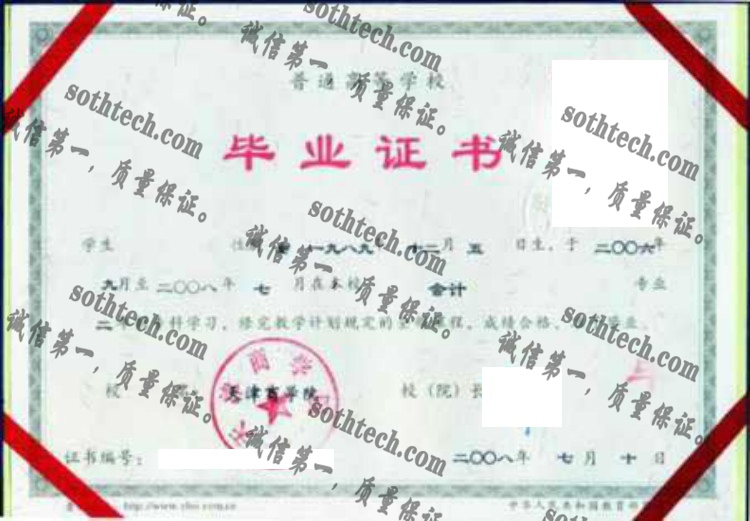 普通高等学校
毕业证书
学生 性 一九八九 十二月 五 日生，于 二〇〇六年
九月至二〇〇八年 七 月在本校 会计 专业
二年 科学习，修完教学计划规定的全 程，成绩合格， 毕业。
校 天津商学院 校（院）长
证书编号： 二〇〇八年 七 月 十 日
中华人民共和国教育部
sothtech.com
诚信第一，质量保证。
sothtech.com
诚信第一，质量保证。
sothtech.com
诚信第一，质量保证。
sothtech.com
诚信第一，质量保证。
sothtech.com
诚信第一，质量保证。
sothtech.com
诚信第一，质量保证。
sothtech.com
诚信第一，质量保证。